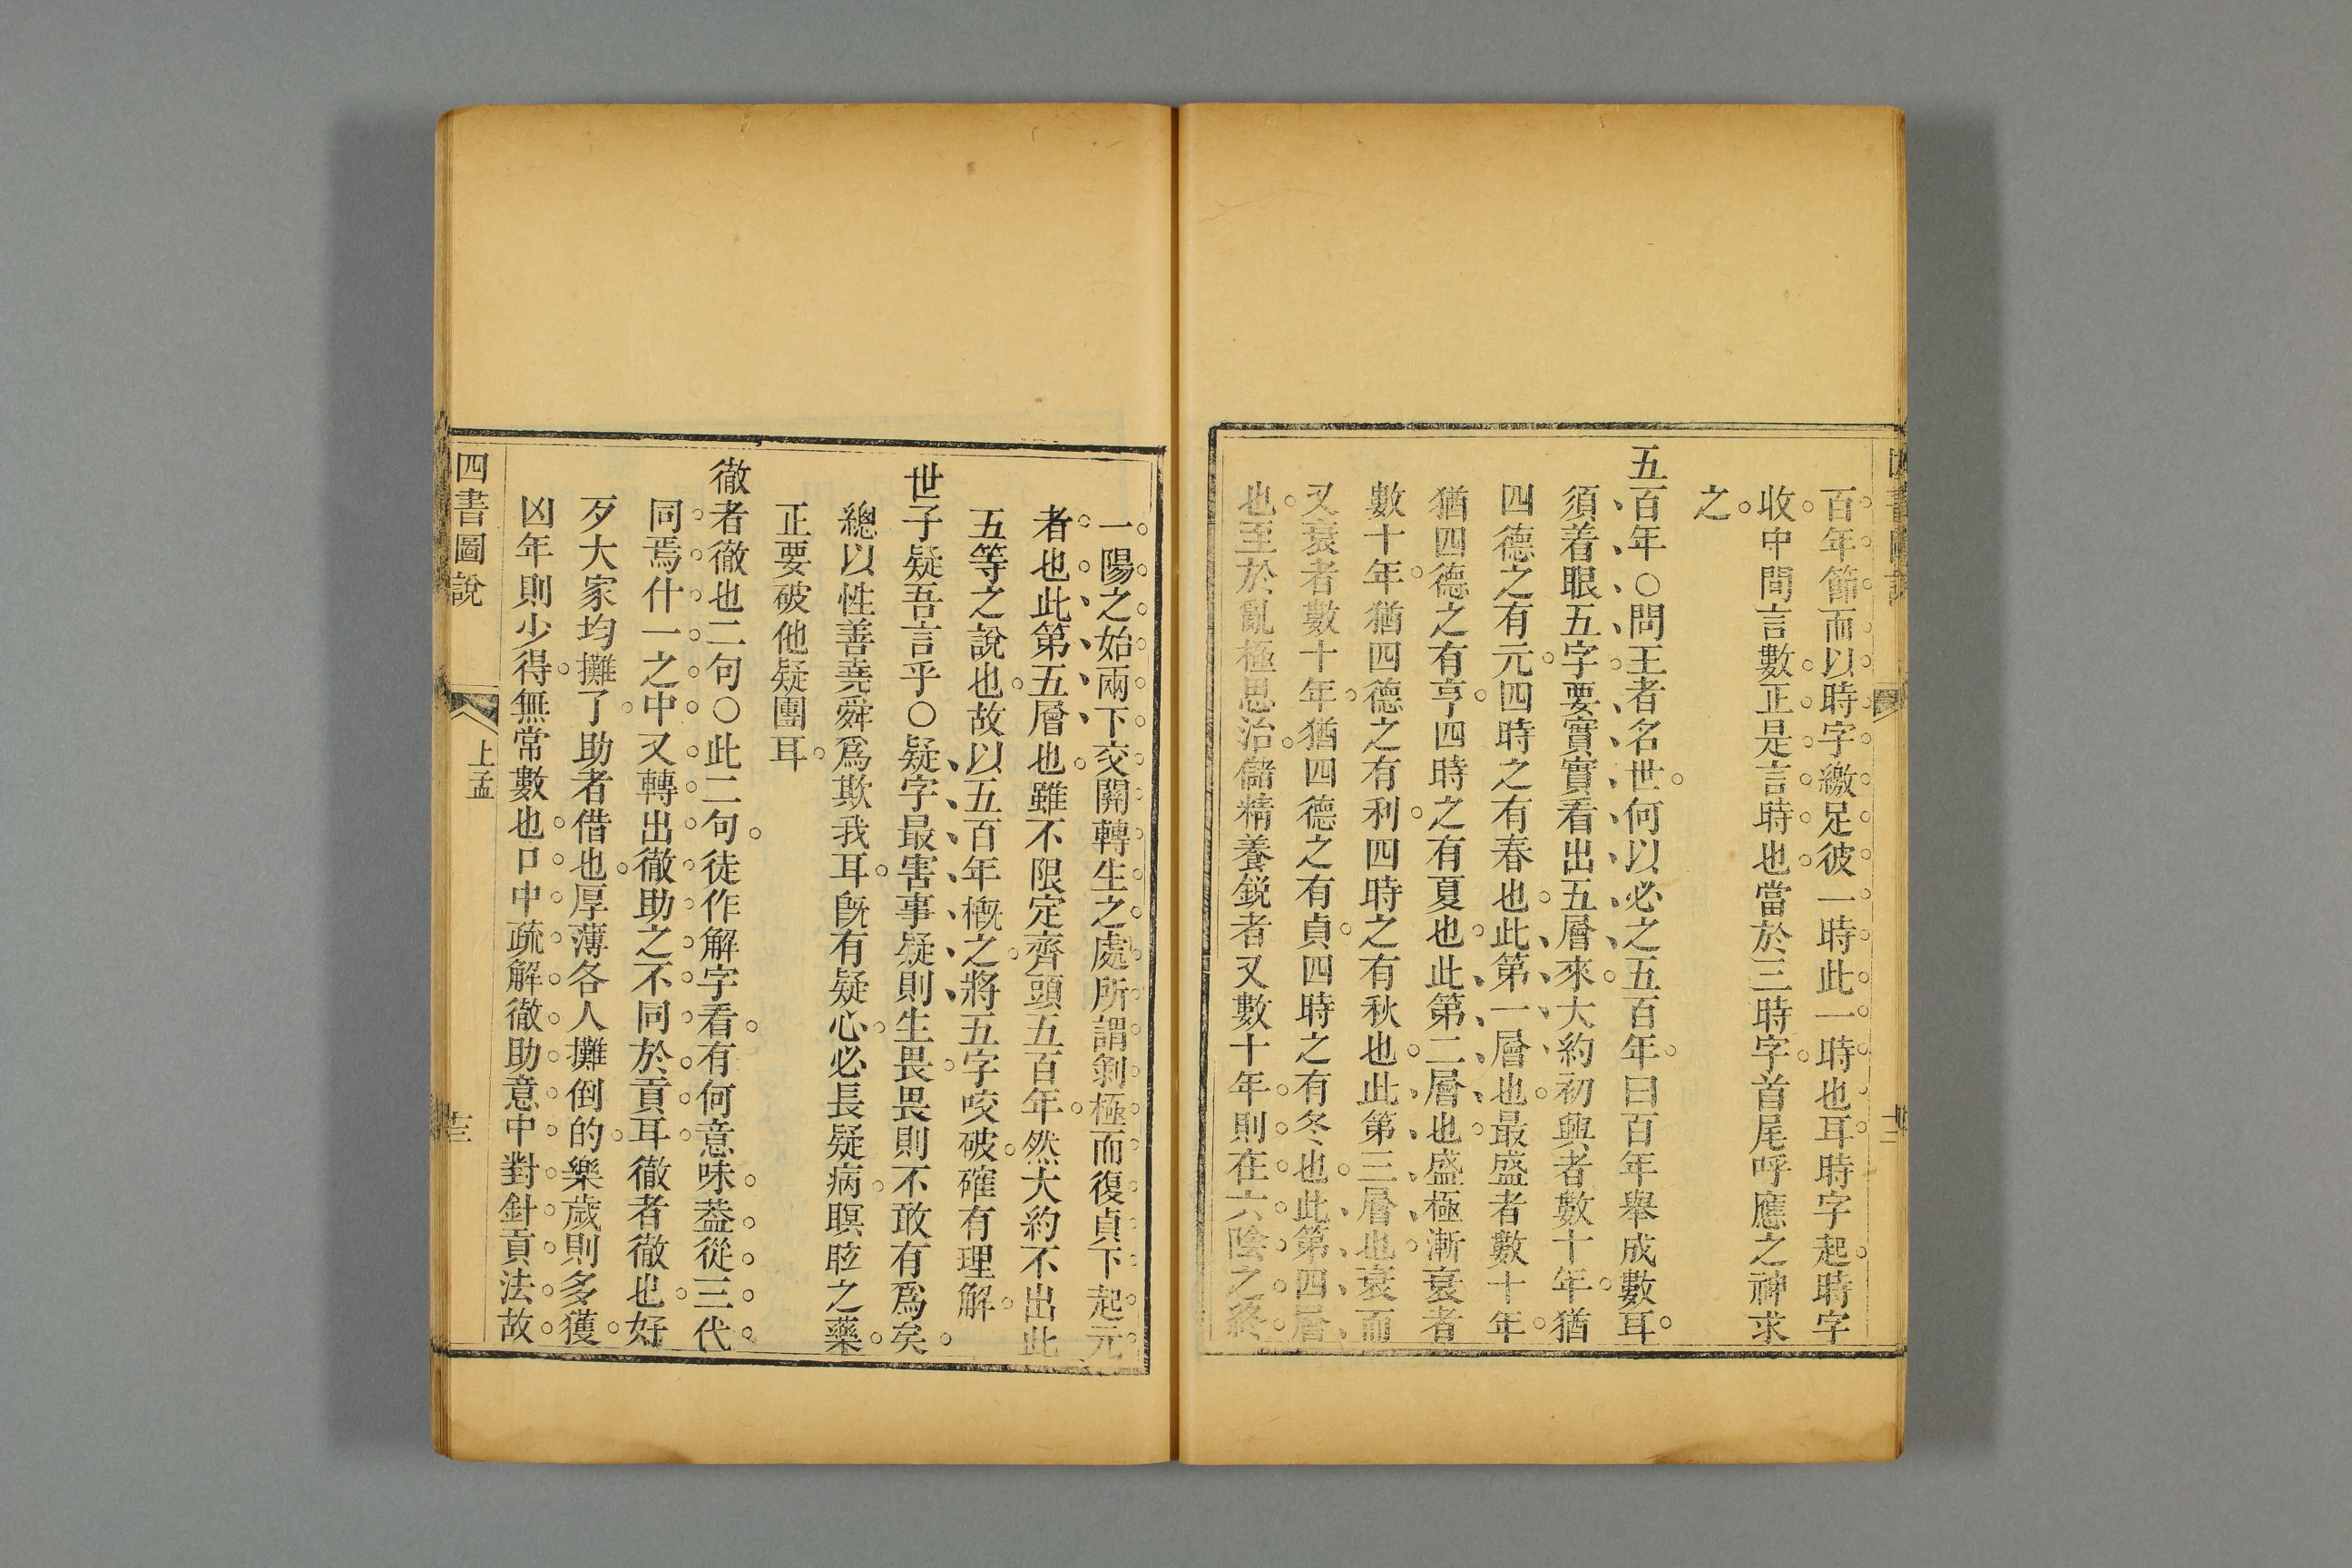 百年節而以時字繳足彼一時此一時也耳時字起時字
收中間言數正是言時也當於三時字首尾呼應之神求
之
五百年○問王者名世何以必之五百年曰百年舉成數耳
須着眼五字要實實看出五層來大約初興者數十年猶
四德之有元四時之有春也此第一層也最盛者數十年
猶四德之有亨四時之有夏也此第二層也盛極漸衰者
數十年猶四德之有利四時之有秋也此第三層也衰而
又衰者數十年猶四德之有貞四時之有冬也此第四層
也至於亂極思治儲精養鋭者又數十年則在六陰之終
一陽之始兩下交關轉生之處所謂剝極而復貞下起元
者也此第五層也雖不限定齊頭五百年然大約不出此
五等之說也故以五百年槪之將五字咬破確有理解
世子疑吾言乎○疑字最害事疑則生畏畏則不敢有爲矣
總以性善堯舜爲欺我耳旣有疑心必長疑病瞑眩之藥
正要破他疑團耳
徹者徹也二句○此二句徒作解字看有何意味葢從三代
同焉什一之中又轉出徹助之不同於貢耳徹者徹也好
歹大家均攤了助者借也厚薄各人攤倒的樂歲則多獲
凶年則少得無常數也口中疏解徹助意中對針貢法故
四書圖說
上孟